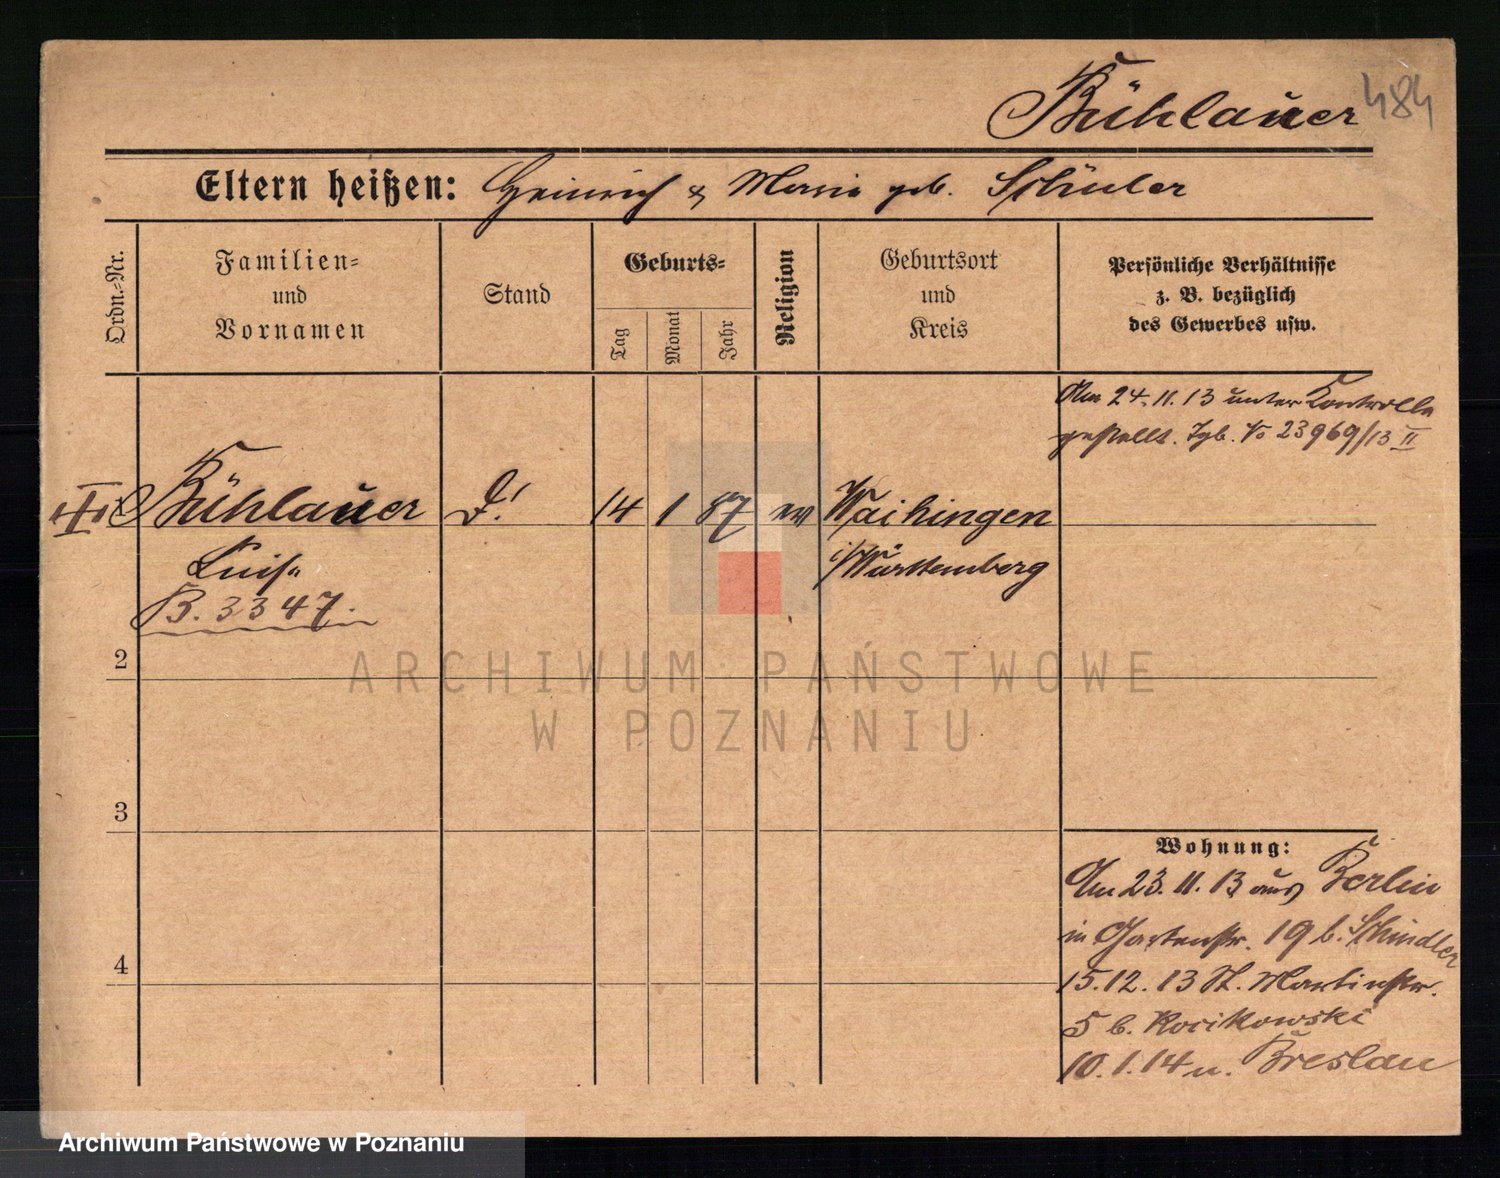 Bühlauer 484
Eltern heißen: Heinrich & Marie geb. Schüler
Ordn.-Nr.
Familien-
und
Vornamen
Stand
Geburts-
Tag
Monat
Jahr
Religion
Geburtsort
und
Kreis
Persönliche Verhältnisse
z. B. bezüglich
des Gewerbes usw.
Am 24. 11. 13 unter Kontrolle
gestellt. Tgb. No 23969/13 II
Bühlauer
14 1 87 ev Waihingen
Luise
i/Württemberg
B. 3347.
2
3
4
Wohnung:
Am 23. 11. 13 aus Berlin
in Gartenstr. 19 b. Schindler
15. 12. 13 St. Martinstr.
5 b. Rocikowski
10. 1. 14 n. Breslau
ARCHIWUM PAŃSTWOWE
W POZNANIU
Archiwum Państwowe w Poznaniu